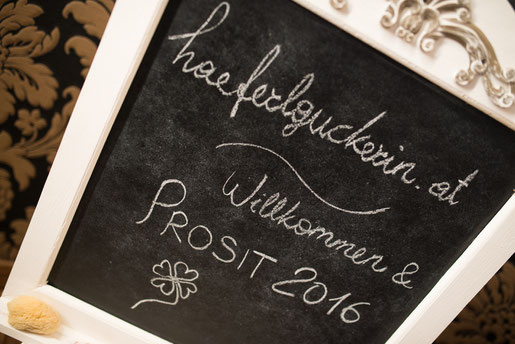 haeferlguckerin.at
Willkommen &
PROSIT 2016